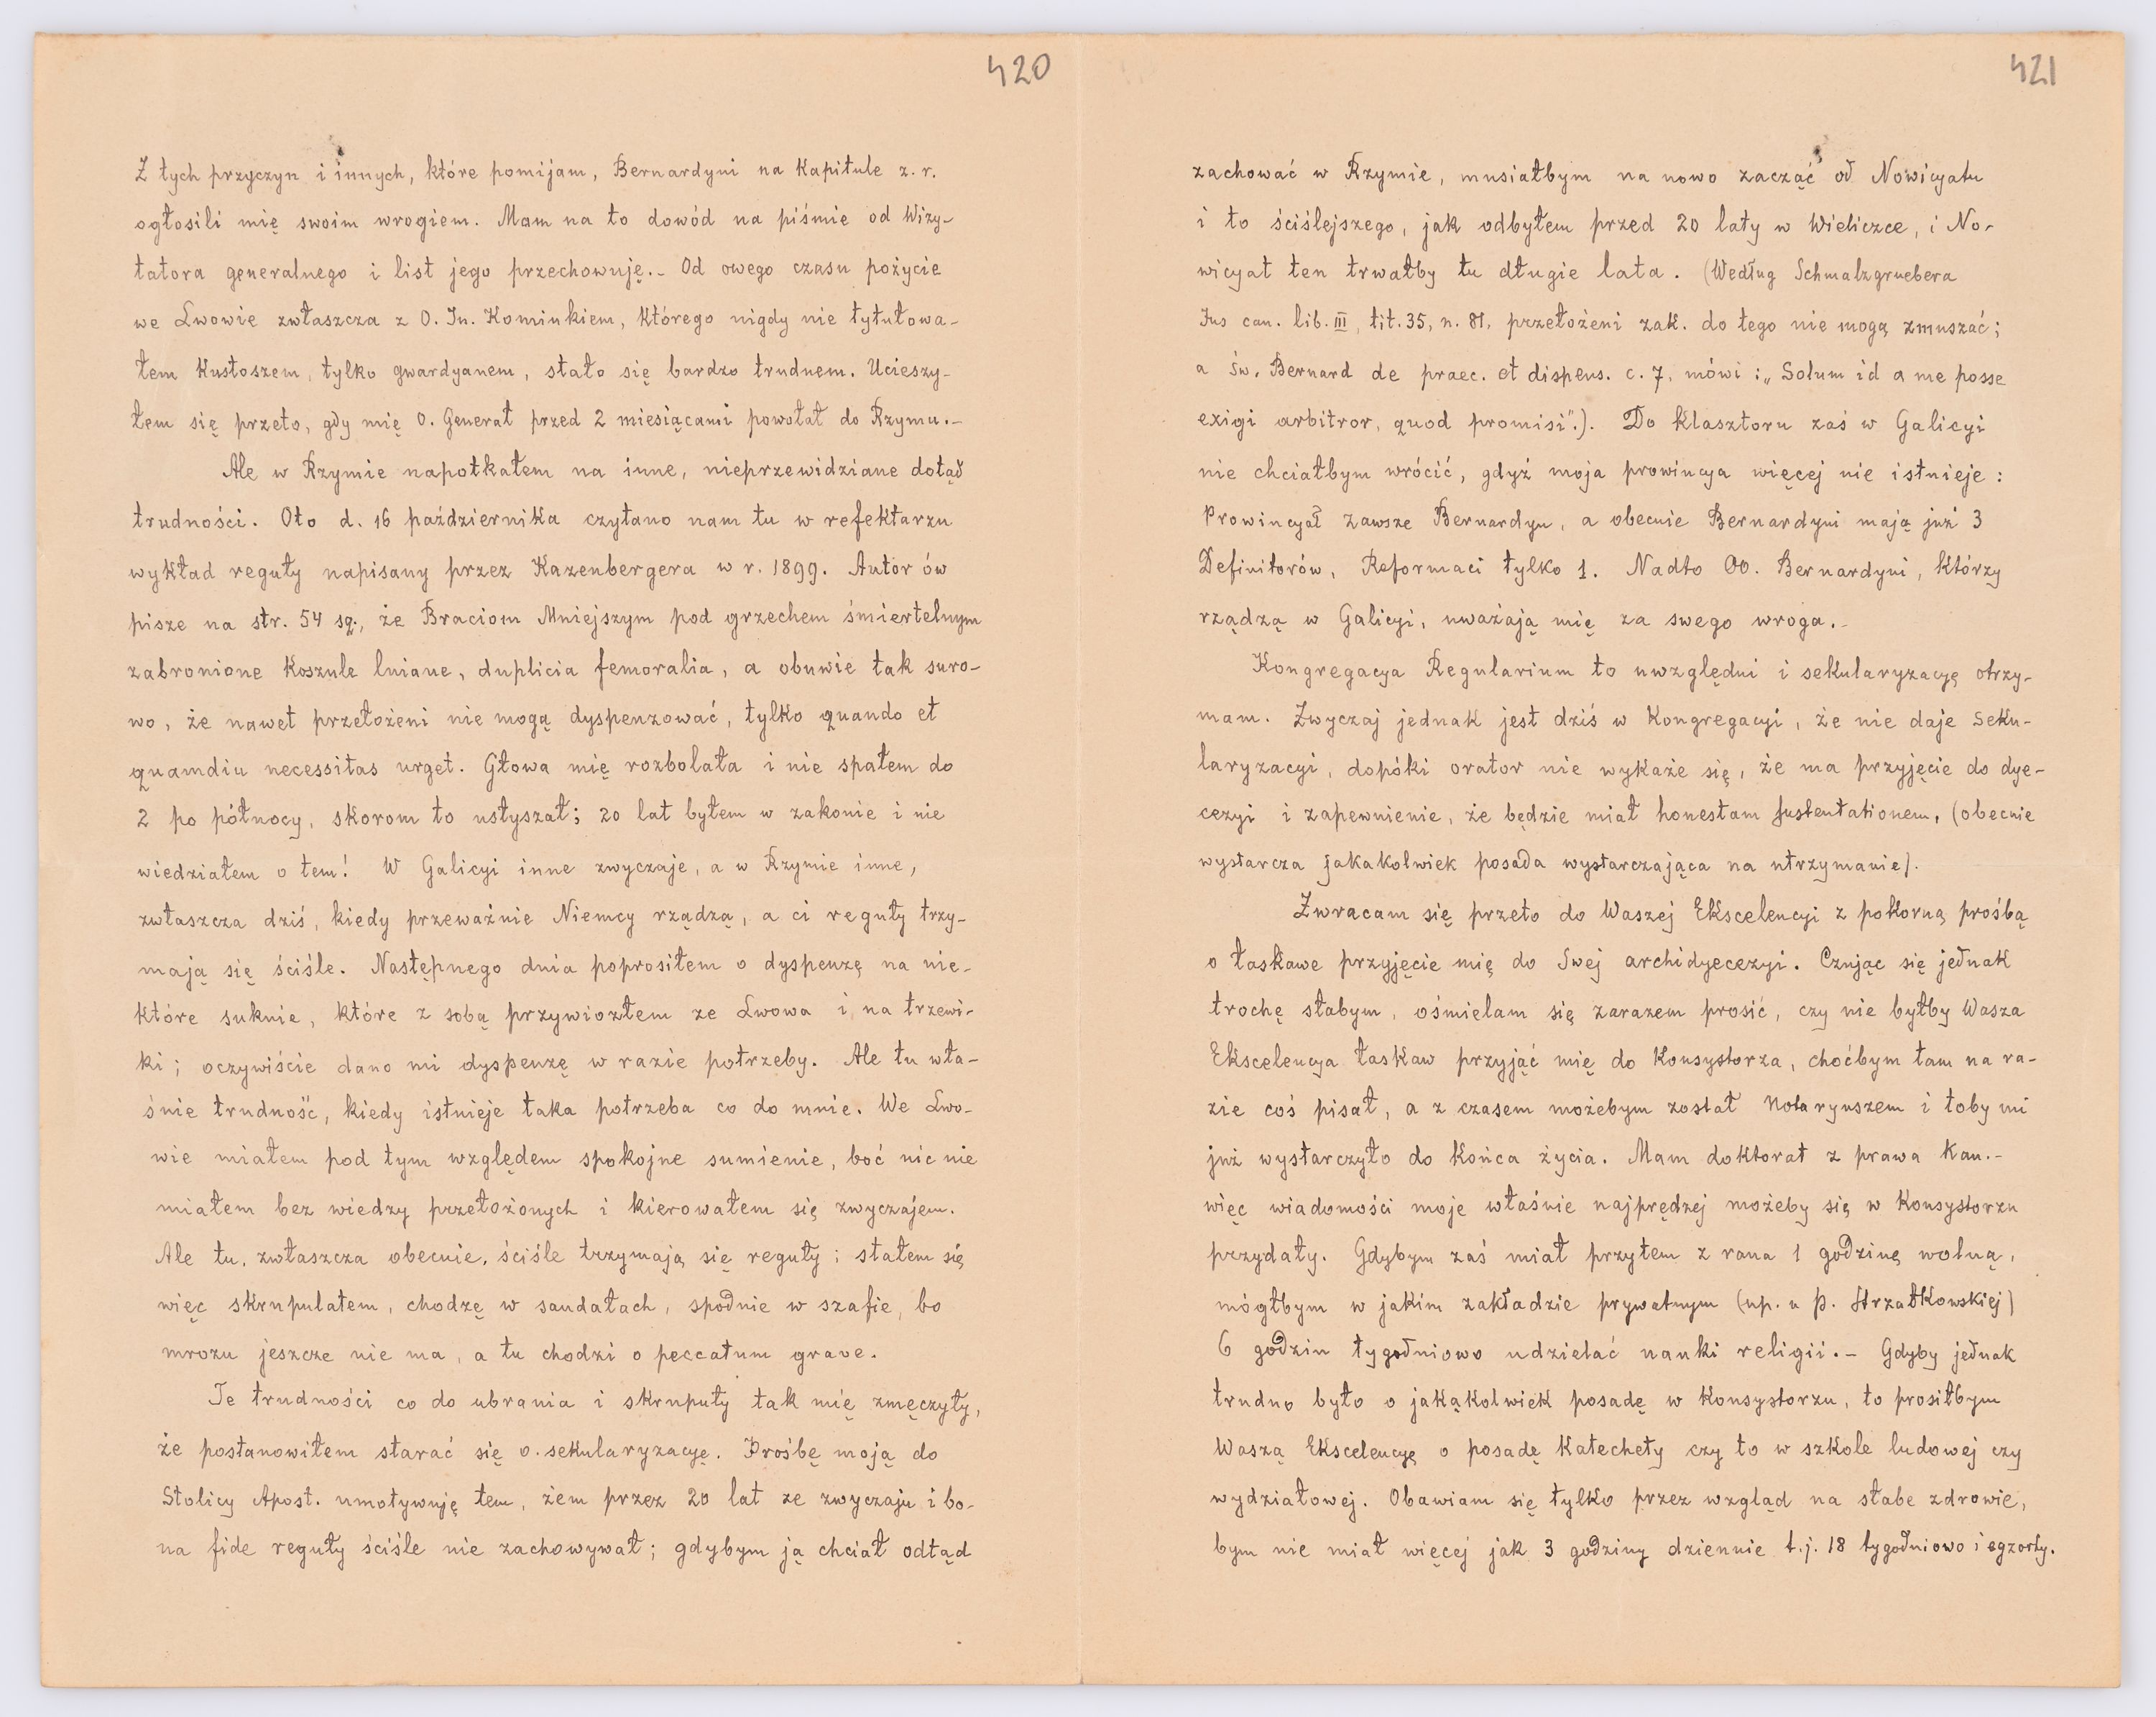 420
Z tych przyczyn i innych, które pomijam, Bernardyni na Kapitule z. r.
ogłosili mię swoim wrogiem. Mam na to dowód na piśmie od Wizy-
tatora generalnego i list jego przechowuję.- Od owego czasu pożycie
we Lwowie zwłaszcza z O. In. Kominkiem, którego nigdy nie tytułowa-
łem Kustoszem, tylko gwardyanem, stało się bardzo trudnem. Ucieszy-
łem się przeto, gdy mię O. Generał przed 2 miesiącami powołał do Rzymu.-
Ale w Rzymie napotkałem na inne, nieprzewidziane dotąd
trudności. Oto d. 16 października czytano nam tu w refektarzu
wykład reguły napisany przez Kazenbergera w r. 1899. Autor ów
pisze na str. 54 sq., że Braciom Mniejszym pod grzechem śmiertelnym
zabronione Koszule lniane, duplicia femoralia, a obuwie tak suro-
wo, że nawet przełożeni nie mogą dyspenzować, tylko quando et
quamdiu necessitas urget. Głowa mię rozbolała i nie spałem do
2 po północy, skorom to usłyszał; 20 lat byłem w zakonie i nie
wiedziałem o tem! W Galicyi inne zwyczaje, a w Rzymie inne,
zwłaszcza dziś, kiedy przeważnie Niemcy rządzą, a ci reguły trzy-
mają się ściśle. Następnego dnia poprosiłem o dyspenzę na nie-
które suknie, które z sobą przywiozłem ze Lwowa i na trzewi-
ki; oczywiście dano mi dyspenzę w razie potrzeby. Ale tu wła-
śnie trudność, kiedy istnieje taka potrzeba co do mnie. We Lwo-
wie miałem pod tym względem spokojne sumienie, boć nic nie
miałem bez wiedzy przełożonych i kierowałem się zwyczajem.
Ale tu, zwłaszcza obecnie, ściśle trzymają się reguły; stałem się
więc skrupulatem, chodzę w sandałach, spodnie w szafie, bo
mrozu jeszcze nie ma, a tu chodzi o peccatum grave.
Te trudności co do ubrania i skrupuły tak mię zmęczyły,
że postanowiłem starać się o sekularyzacyę. Prośbę moją do
Stolicy Apost. umotywuję tem, żem przez 20 lat ze zwyczaju i bo-
na fide reguły ściśle nie zachowywał; gdybym ją chciał odtąd
421
zachować w Rzymie, musiałbym na nowo zacząć od Nowicyatu
i to ściślejszego, jak odbyłem przed 20 laty w Wieliczce, i No-
wicyat ten trwałby tu długie lata. (Według Schmalzgruebera
Jus can. lib. III, tit. 35, n. 81, przełożeni zak. do tego nie mogą zmuszać;
a św. Bernard de praec. et dispens. c. 7, mówi: „Solum id a me posse
exigi arbitror, quod promisi".). Do klasztoru zaś w Galicyi
nie chciałbym wrócić, gdyż moja prowincya więcej nie istnieje:
Prowincyał zawsze Bernardyn, a obecnie Bernardyni mają już 3
Definitorów, Reformaci tylko 1. Nadto OO. Bernardyni, którzy
rządzą w Galicyi, uważają mię za swego wroga.-
Kongregacya Regularium to uwzględni i sekularyzacyę otrzy-
mam. Zwyczaj jednak jest dziś w Kongregacyi, że nie daje seku-
laryzacyi, dopóki orator nie wykaże się, że ma przyjęcie do dye-
cezyi i zapewnienie, że będzie miał honestam sustentationem, (obecnie
wystarcza jakakolwiek posada wystarczająca na utrzymanie).
Zwracam się przeto do Waszej Ekscelencyi z pokorną prośbą
o łaskawe przyjęcie mię do Swej archidyecezyi. Czując się jednak
trochę słabym, ośmielam się zarazem prosić, czy nie byłby Wasza
Ekscelencya łaskaw przyjąć mię do Konsystorza, choćbym tam na ra-
zie coś pisał, a z czasem możebym został Notaryuszem i toby mi
już wystarczyło do końca życia. Mam doktorat z prawa kan.-
więc wiadomości moje właśnie najprędzej możeby się w Konsystorzu
przydały. Gdybym zaś miał przytem z rana 1 godzinę wolną,
mógłbym w jakim zakładzie prywatnym (np. u P. Strzałkowskiej)
6 godzin tygodniowo udzielać nauki religii.- Gdyby jednak
trudno było o jakąkolwiek posadę w Konsystorzu, to prosiłbym
Waszą Ekscelencyę o posadę Katechety czy to w szkole ludowej czy
wydziałowej. Obawiam się tylko przez wzgląd na słabe zdrowie,
bym nie miał więcej jak 3 godziny dziennie t.j. 18 tygodniowo i egzorty.